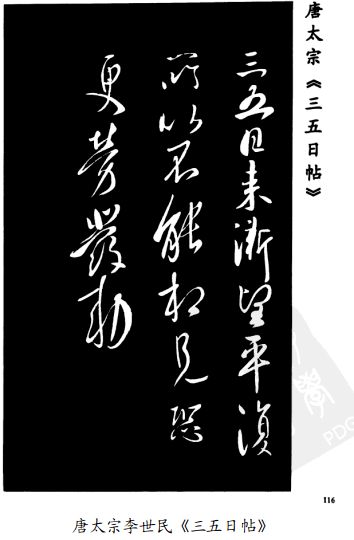 唐太宗《三五日帖》
三五日来渐望平復
所以不能相見恐
更劳發動
116
PDG
唐太宗李世民《三五日帖》